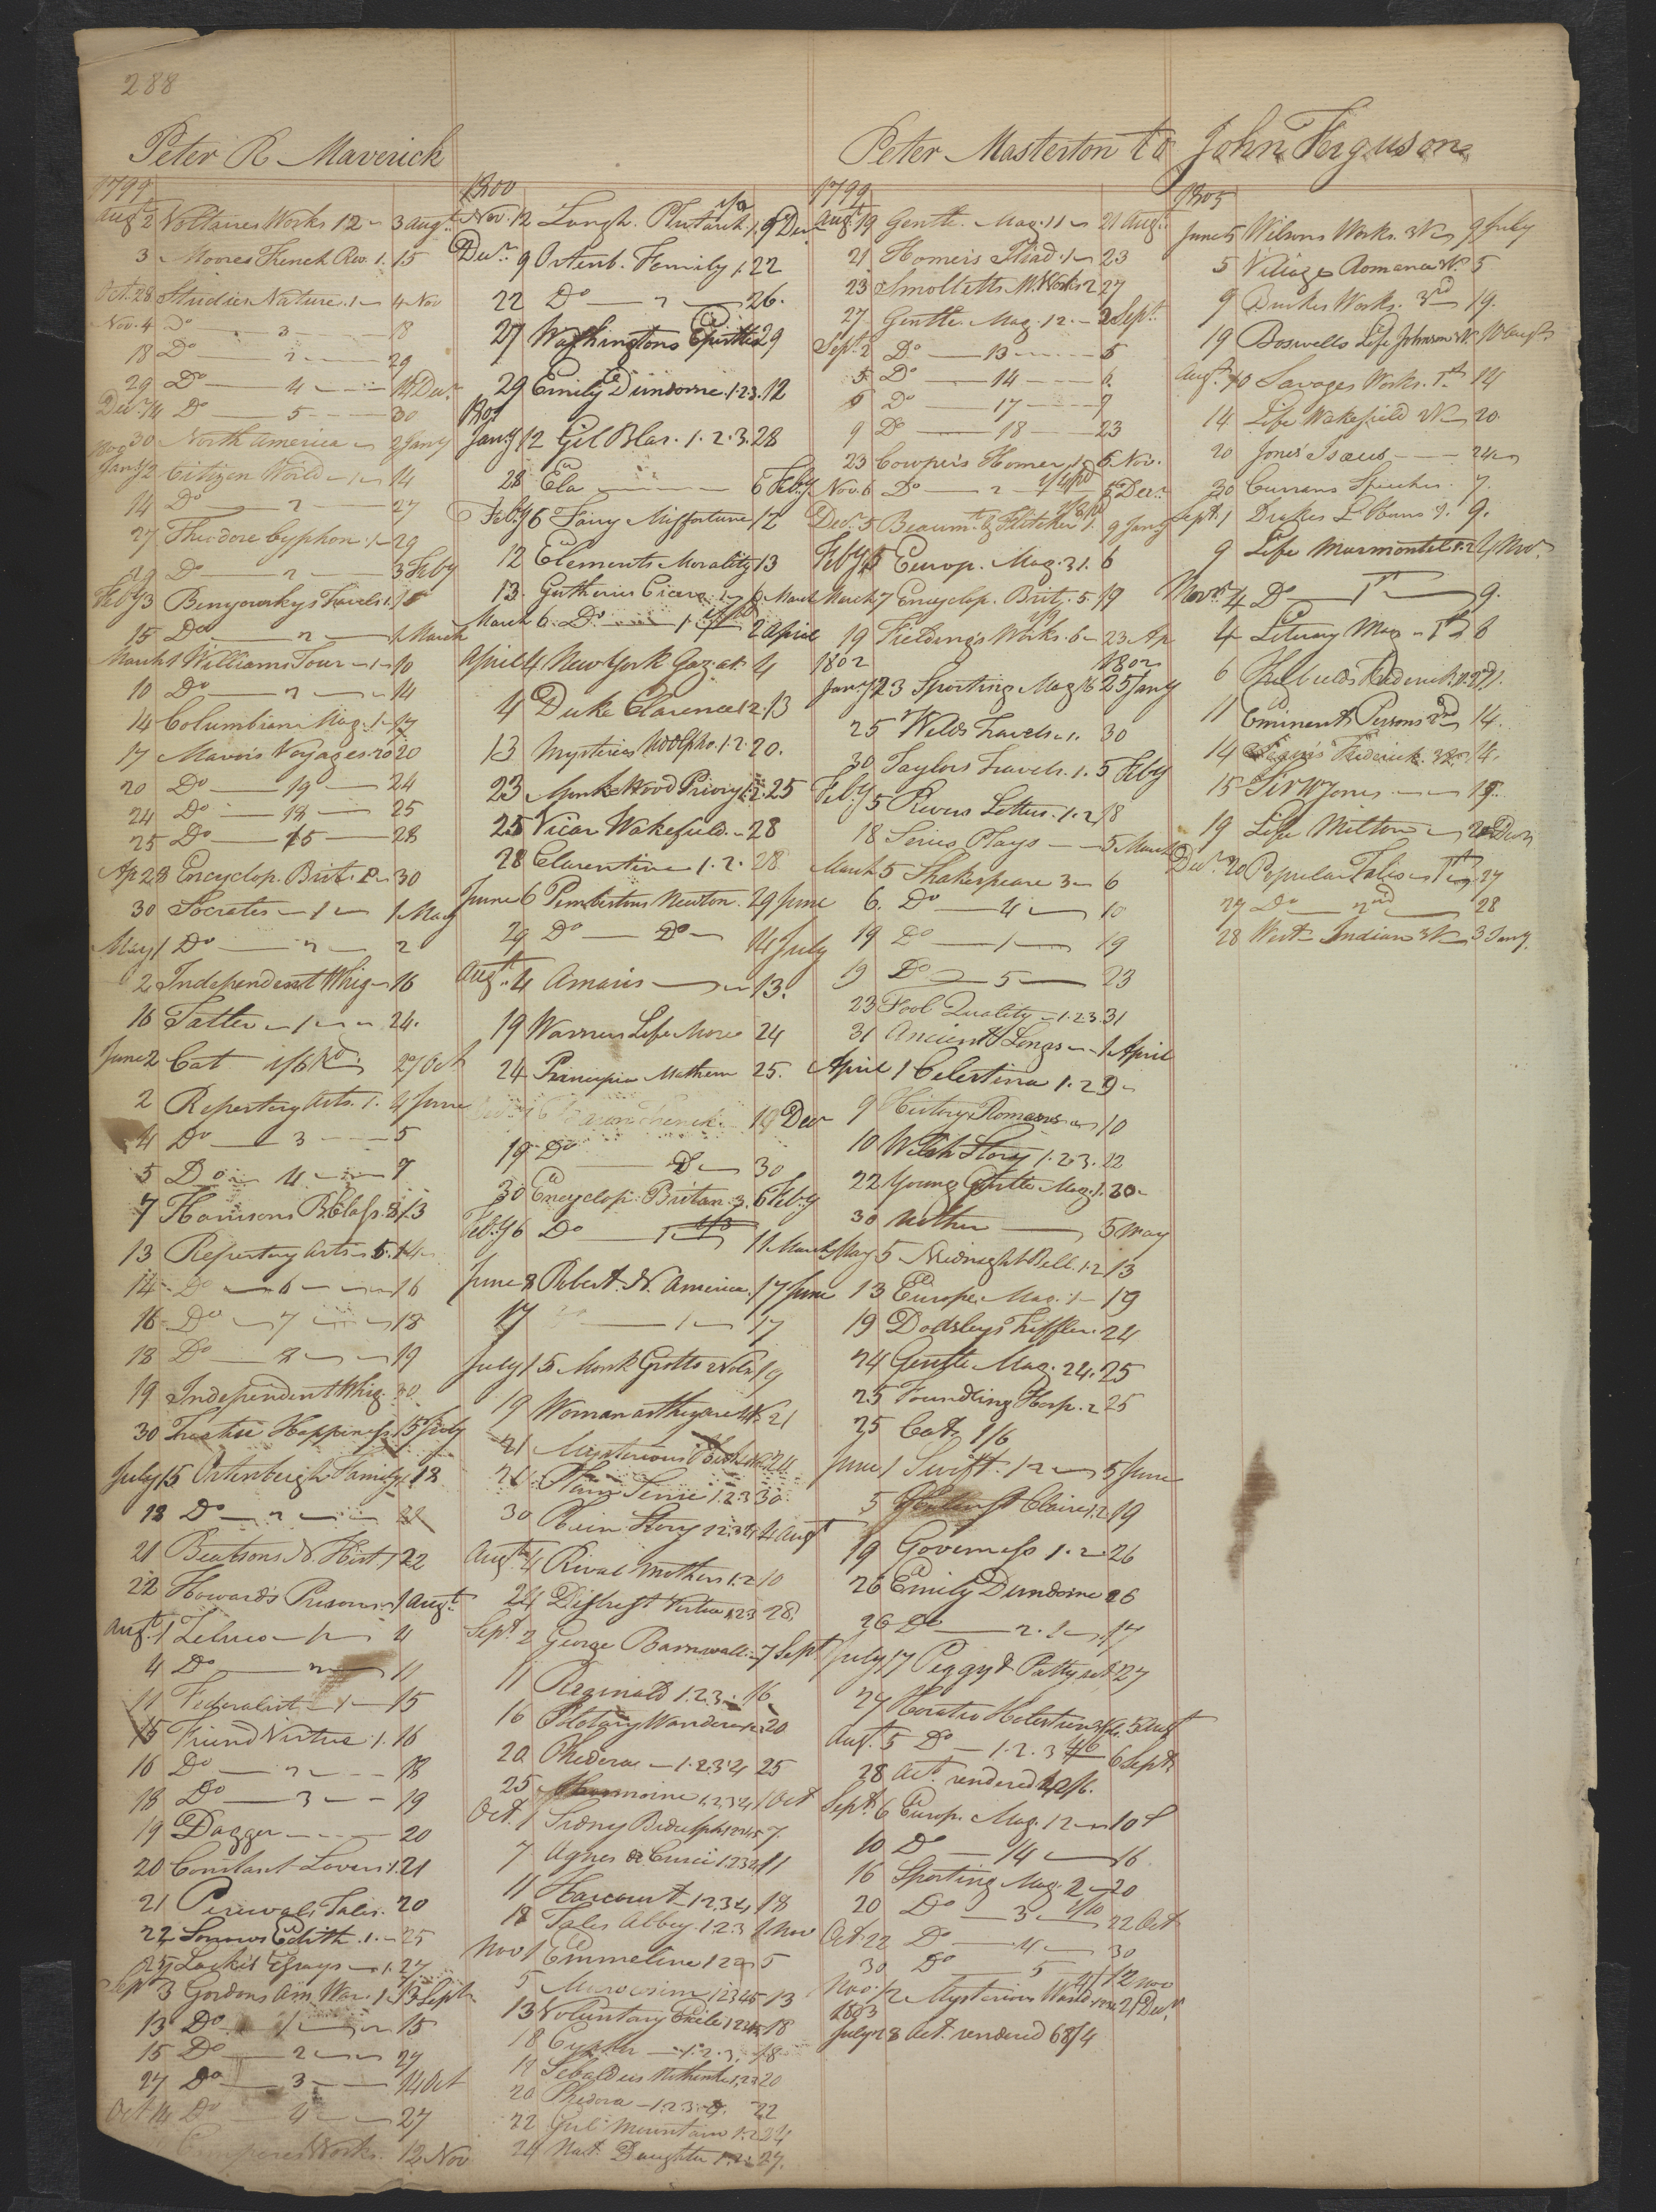 288
Peter R Maverick
1799
Augt 2 Voltaires Works 12 3 Augt
3 Moores French Rev. 1. 15
Oct. 28 Studies Nature. 1 4 Nov
Nov. 4 Do 3 18
18 Do 2 29
29 Do 4 14 Decr
Decr 14 Do 5 30
30 North America 2 Jany
1800
Jany 2 Citizen World 1 14
14 Do 2 27
27 Theodore Cyphon. 1 29
29 Do 2 3 Feby
Feby 3 Benyowskys Travels 1. 15
15 Do 2 1 March
March 1 Williams Tour 1 10
10 Do 2 14
14 Columbian Mag. 1 17
17 Mavors Voyages 20 20
20 Do 19 24
24 Do 18 25
25 Do 15 28
Ap 28 Encyclop. Brit. 2 30
30 Socrates 1 1 May
May 1 Do 2 2
2 Independent Whig 16
16 Tatler 1 24.
June 2 Cat 1/6 27 Oct
2 Repertory Arts. 1. 4 June
4 Do 3 5
5 Do 4 7
7 Harrisons B. Class. 8 13
13 Repertory Arts 5. 14
14 Do 6 16
16 Do 7 18
18 Do 8 19
19 Independent Whig. 30
30 Happiness 15 July
July 15 Ortenburgh Family 1 18
18 Do 2 21
21 Beatsons N. Hist 1 22
22 Howards Prisons 1 Augt
Augt. 1 Zeluco 1 4
4 Do 2 11
11 Federalist 1 15
15 Friend Virtue 1. 16
16 Do 2 18
18 Do 3 19
19 Dagger 20
20 Constant Lover 1. 21
21 Percivals Tales. 20
22 Edith. 1. 25
25 Lockes Essays 1. 27
Sept 3 Gordons Am. War. 1 13 Sept
13 Do 1 15
15 Do 2 27
27 Do 3 14 Oct
Oct 14 Do 4 27
Cowpers Works. 12 Nov
1800
Nov. 12 Langh. Plutarch 1. 9 Decr
Decr 9 Ortenb. Family 1. 22
22 Do 2 26.
27 Washingtons Epistles 29
29 Emily Dundorne. 1.2.3. 12
1801
Jany 12 Gil Blas. 1. 2. 3. 28
28 Ela 6 Feby
Feby 6 Fairy Misfortune 12
12 Elements Morality 13
13. Guthries Cicero 1 6 March
March 6. Do 1. 2 April
April 4 New York Gazet 4
4 Duke Clarence 1.2. 13
13 Mysteries Udolpho. 1.2. 20.
23 Monkswood Priory 1.2. 25
25 Vicar Wakefield. 28
28 Clarentine 1. 2. 28
June 6 Pembertons Newton. 29 June
29 Do Do 14 July
Augt. 4 Amaris 13.
19 Warners Life More 24
24 Principia Mathem 25.
19 Decr
19 Do 30
30 Encyclop. Britan. 3. 6 Feby
Feby 6 Do 1 11 March
June 8 Robert. N. America. 17 June
17 1 17
July 15 Monk Grotto 19
19 21
21 Mysterious 24
24 Plain Sense 1.2.3 30.
30 Story 1.2.3.4 4 Augt
Augt 4 Rival Mothers 1.2 10
24 Distrest Virtue 1.2.3 28
Sept. 2 George Barnwell. 7 Sept
11 Reginald 1.2.3. 16
16 Wanderer 20
20 Phedora 1.2.3.4 25
25 1.2.3.4 1 Oct
Oct. 1 Sidny Bidulph 1.2.3.4.5 7.
7 Agnes De Curci 1.2.3.4 11
11 Harcourt 1.2.3.4 18
18 Tales Abbey. 1.2.3 1 Nov
Nov 1 Emmeline 1 2 5
5 1.2.3.4.5 13
13 Voluntary Exile 1.2.3.4.5 18
18 1.2.3. 18
19 Sebaldus Nothanker 1.2.3 20
20 Phedora 1.2.3.4. 22
22 Mountain 1.2 24
24 Nat. Daughter 1.2. 27.
Peter Masterton to John Ferguson
1799
Augt 19 Gentle. Mag. 11 21 Augt
21 Homers Iliad. 1 23
23 Smolletts M. Works 2 27
27 Gentle. Mag. 12. 2 Sept
Sept. 2 Do 13 5
5. Do 14 6.
6 Do 17 9
9 Do 18 23
23 Cowpers Homer 1 6 Nov.
Nov. 6 Do 2 5 Decr
Decr. 5 Beaumt & Fletcher 1. 9 Jany
Feby 5 Europ. Mag. 31. 6
March 7 Encyclop. Brit. 5. 19
19 Fieldings Works. 6 23 Ap
1802 1802
Jany 23 Sporting Mag 16 25 Jany
25 Welds Travels. 1. 30
30 Taylors Travels. 1. 5 Feby
Feby 5 Rivers Letters. 1. 2 18
18 Series Plays 5 March
March 5 Shakespeare 3 6
6. Do 4 10
19 Do 1 19
19 Do 5 23
23 Fool Quality 1.2.3. 31
31 Ancient Songs 1 April
April 1 Celestina 1. 2 9
9 History Romans 10
10 Welsh Story 1.2.3. 22
22 Young Gentle Mag. 1. 30
30 Mother 5 May
May 5 Midnight Bell. 1.2 13
13 Europe. Mag. 1 19
19 Dodsleys Trifles. 24
24 Gentle Mag. 24. 25
25 Foundling Hosp. 2 25
25 Cat. 1/6
June 1 Swift. 12 5 June
5 Claire 1.2 19
19 Governess 1. 2. 26
26 Emily Dundorne 26
26 Do 2. 17
July 17 Peggy & Patty 27
27 Horatio Holstein 5 Augt
Augt. 5 Do 1. 2. 3 6 Sept
28 Act. rendered
Sept. 6 Europ. Mag. 12 10 S
10 Do 14 16
16 Sporting Mag. 2 20
20 Do 3 22 Oct
Oct 22 Do 4 30
30 Do 5 12 Nov
Nov. 12 Mysterious 21 Decr
1803
July 28 Act. rendered 68/4
1805
June 5 Wilsons Works. 3V 9 July
5 Village Romance V. 5
9 Burkes Works. 3rd 19.
19 Boswells Life Johnson V. 10 Augt
Augt 10 Savages Works. 1st 14
14. Life Wakefield 2V 20.
20 Jones Isaeus 24
30 Currans Speeches. 7.
Sept. 1 Drakes L. Hours 3. 9.
9 Life Marmontel 1.2 4 Nov.
Novr 4 Do 1st 9.
4 Literary Mag. 1st 6
6 Frederick
11 Eminent Persons 2nd 14.
14 Frederick. 3 14.
15 Sir W Jones 19.
19 Life Milton 20 Decr
Decr 20 Popular Tales 1st 27
27 Do 2nd 28
28 West Indian 3V 3 Jany.